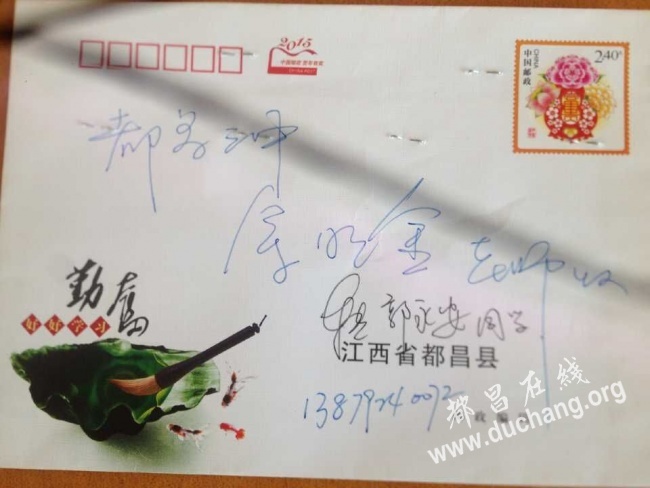 2015
中国邮政 贺年有奖
2.40元
CHINA
中国邮政
都
明金老师收
勤奋
好好学习
郭永安同学
江西省都昌县
13879240072
都昌在线
www.duchang.org